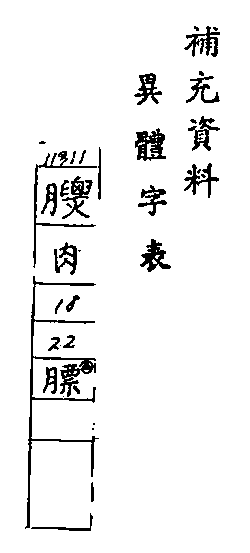 補充資料
異體字表
11311
肉
18
22
膘